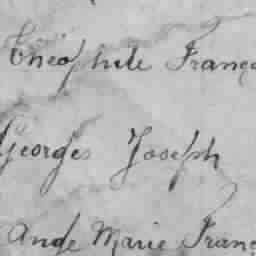 Théophile Franç
Georges Joseph
Ange Marie Franç